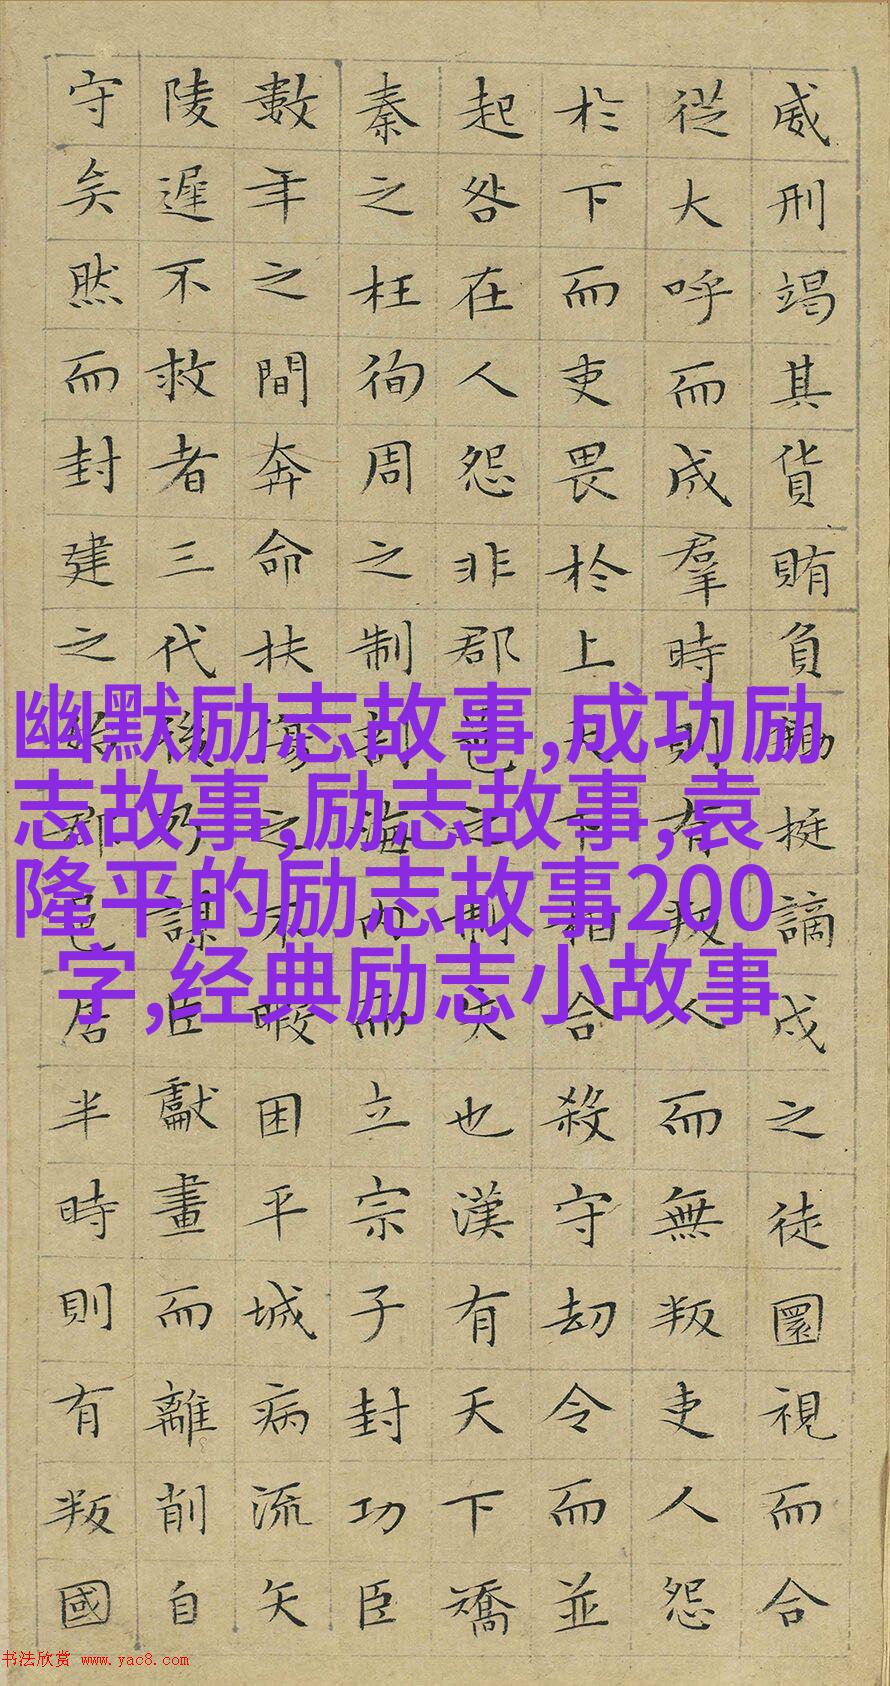 威刑竭其貨賄負鋤梃謫戍之徒圜視而合
從大呼而成羣時則有叛人而無叛吏人怨
於下而吏畏於上天下相合殺守劫令而並
起咎在人怨非郡邑之制失也漢有天下矯
秦之枉徇周之制剖海內而立宗子封功臣
數年之間奔命扶傷之不暇困平城病流矢
陵遲不救者三代後乃謀臣獻畫而離削自
守矣然而封建之始郡邑居半時則有叛國
幽默励志故事,成功励
志故事,励志故事,袁
隆平的励志故事200
字,经典励志小故事
书法欣赏 www.yac8.com